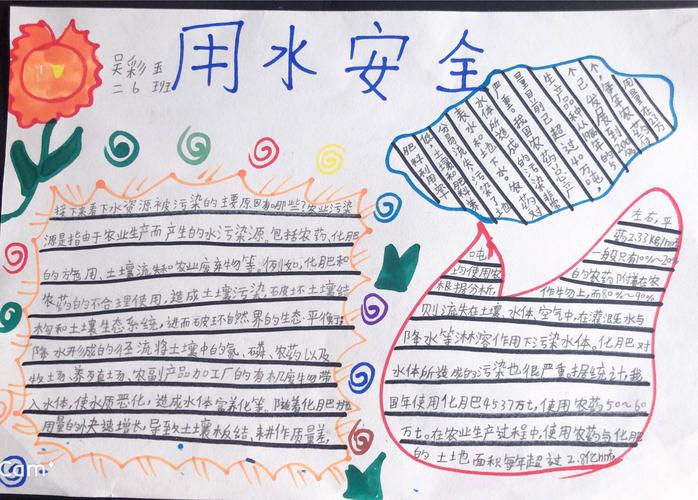 用水安全
吴彩五
二6班
接下来看下水资源被污染的主要原因有哪些?农业污染
源是指由于农业生产而产生的水污染源,包括农药、化肥
的施用、土壤流失和农业废弃物等。例如,化肥和
农药的不合理使用,造成土壤污染,破坏土壤结
构和土壤生态系统,进而破坏自然界的生态平衡;
降水形成的径流将土壤中的氮、磷、农药以及
牧场、养殖场、农副产品加工厂的有机废物带
入水体,使水质恶化,造成水体富养化等。随着化肥施
用量的快速增长,导致土壤板结、耕作质量差,
肥料利用
土壤和肥料
水体和土地造成了
水体所
严重。我国农药
量目前已超过
生产品种
左右,平
药2.33kg/hm²
一般只有10%~20%
吨
均使用农
的农药附着在农
根据分析,
作物上,而80%~90%
则流失在土壤、水体、空气中,在灌溉水与
降水等淋溶作用下污染水体。化肥对
水体所造成的污染也很严重,据统计,我
国年使用化肥4537万t,使用农药50~60
万t。在农业生产过程中,使用农药与化肥
的土地面积每年超过2.8亿hm²
Cam